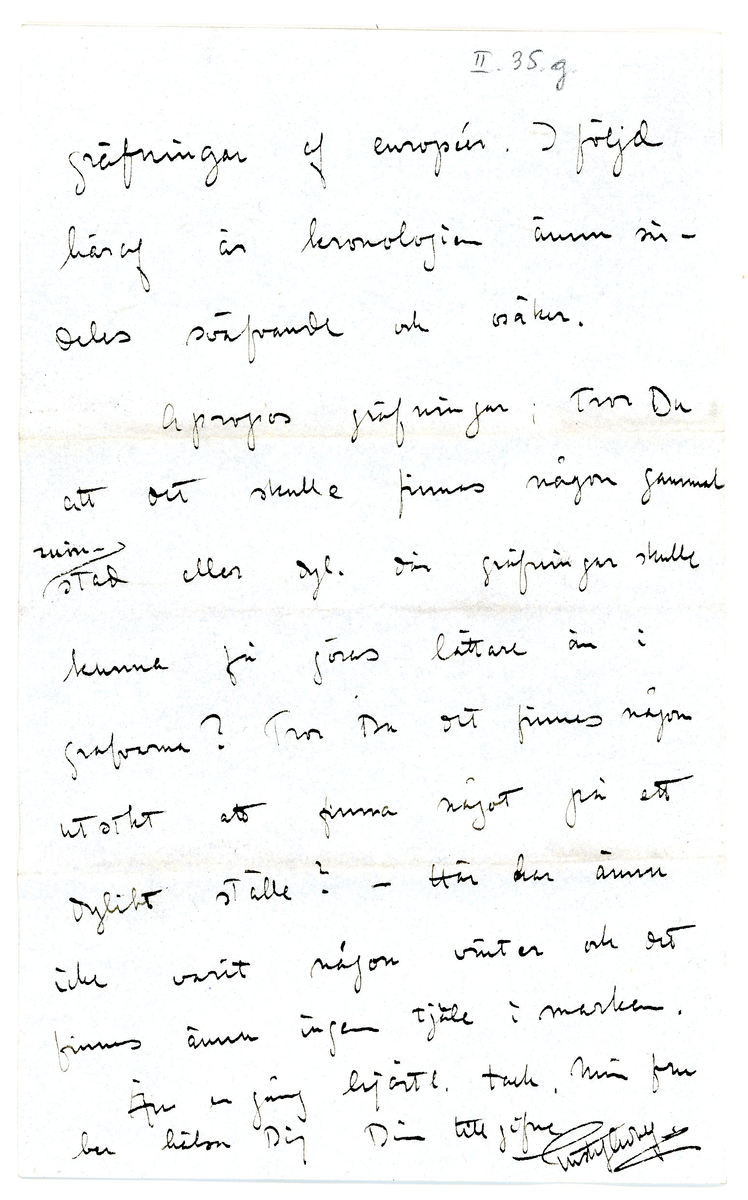 II. 35. g.
gräfningar af européer. I följd
häraf är kronologien ännu sär-
deles sväfvande och osäker.
Apropos gräfningar; Tror Du
att det skulle finnas någon gammal
ruin-
stad eller dyl. där gräfningar skulle
kunna få göras lättare än i
grafvarna? Tror Du det finnes någon
utsikt att finna något på ett
dylikt ställe? – Här har ännu
icke varit någon vinter och det
finnes ännu ingen tjäle i marken.
Än en gång hjärtl. tack. Min fru
ber hälsa Dig Din tillgifne